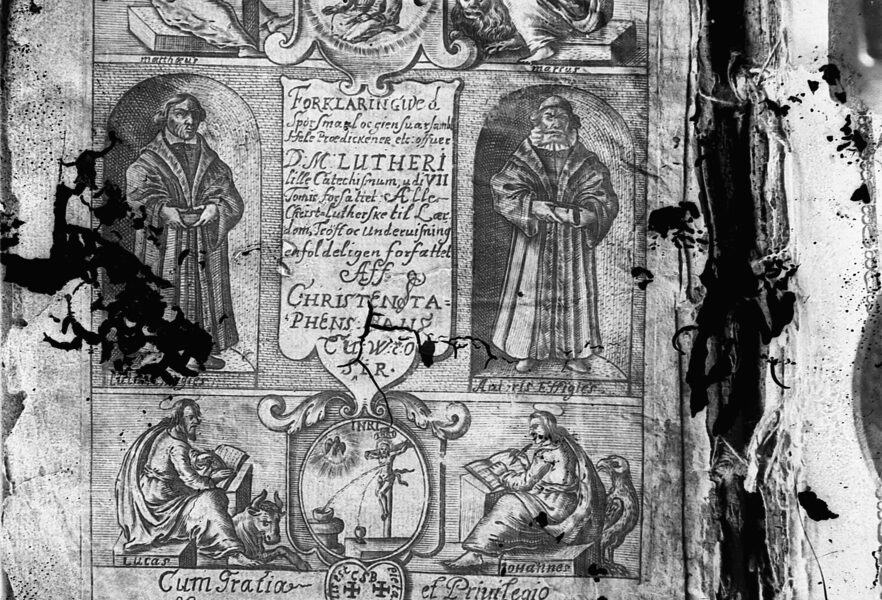 matthæus
marcus
FORKLARING wed
Spörsmaal oc giensuar samt
Hele Prædickener, etc: offuer
D. M. LUTHERI
lille Catechismum, udi VII
Tomis forfattet Alle
Christ-Lutherske til Lær
dom, Tröst oc Underuisning
enfoldeligen forfattet
Aff
CHRISTEN STA=
PHENS
R.
Effigies
Autoris Effigies
INRI
Lucas
Johannes
Cum Gratia
et Privilegio
CSB